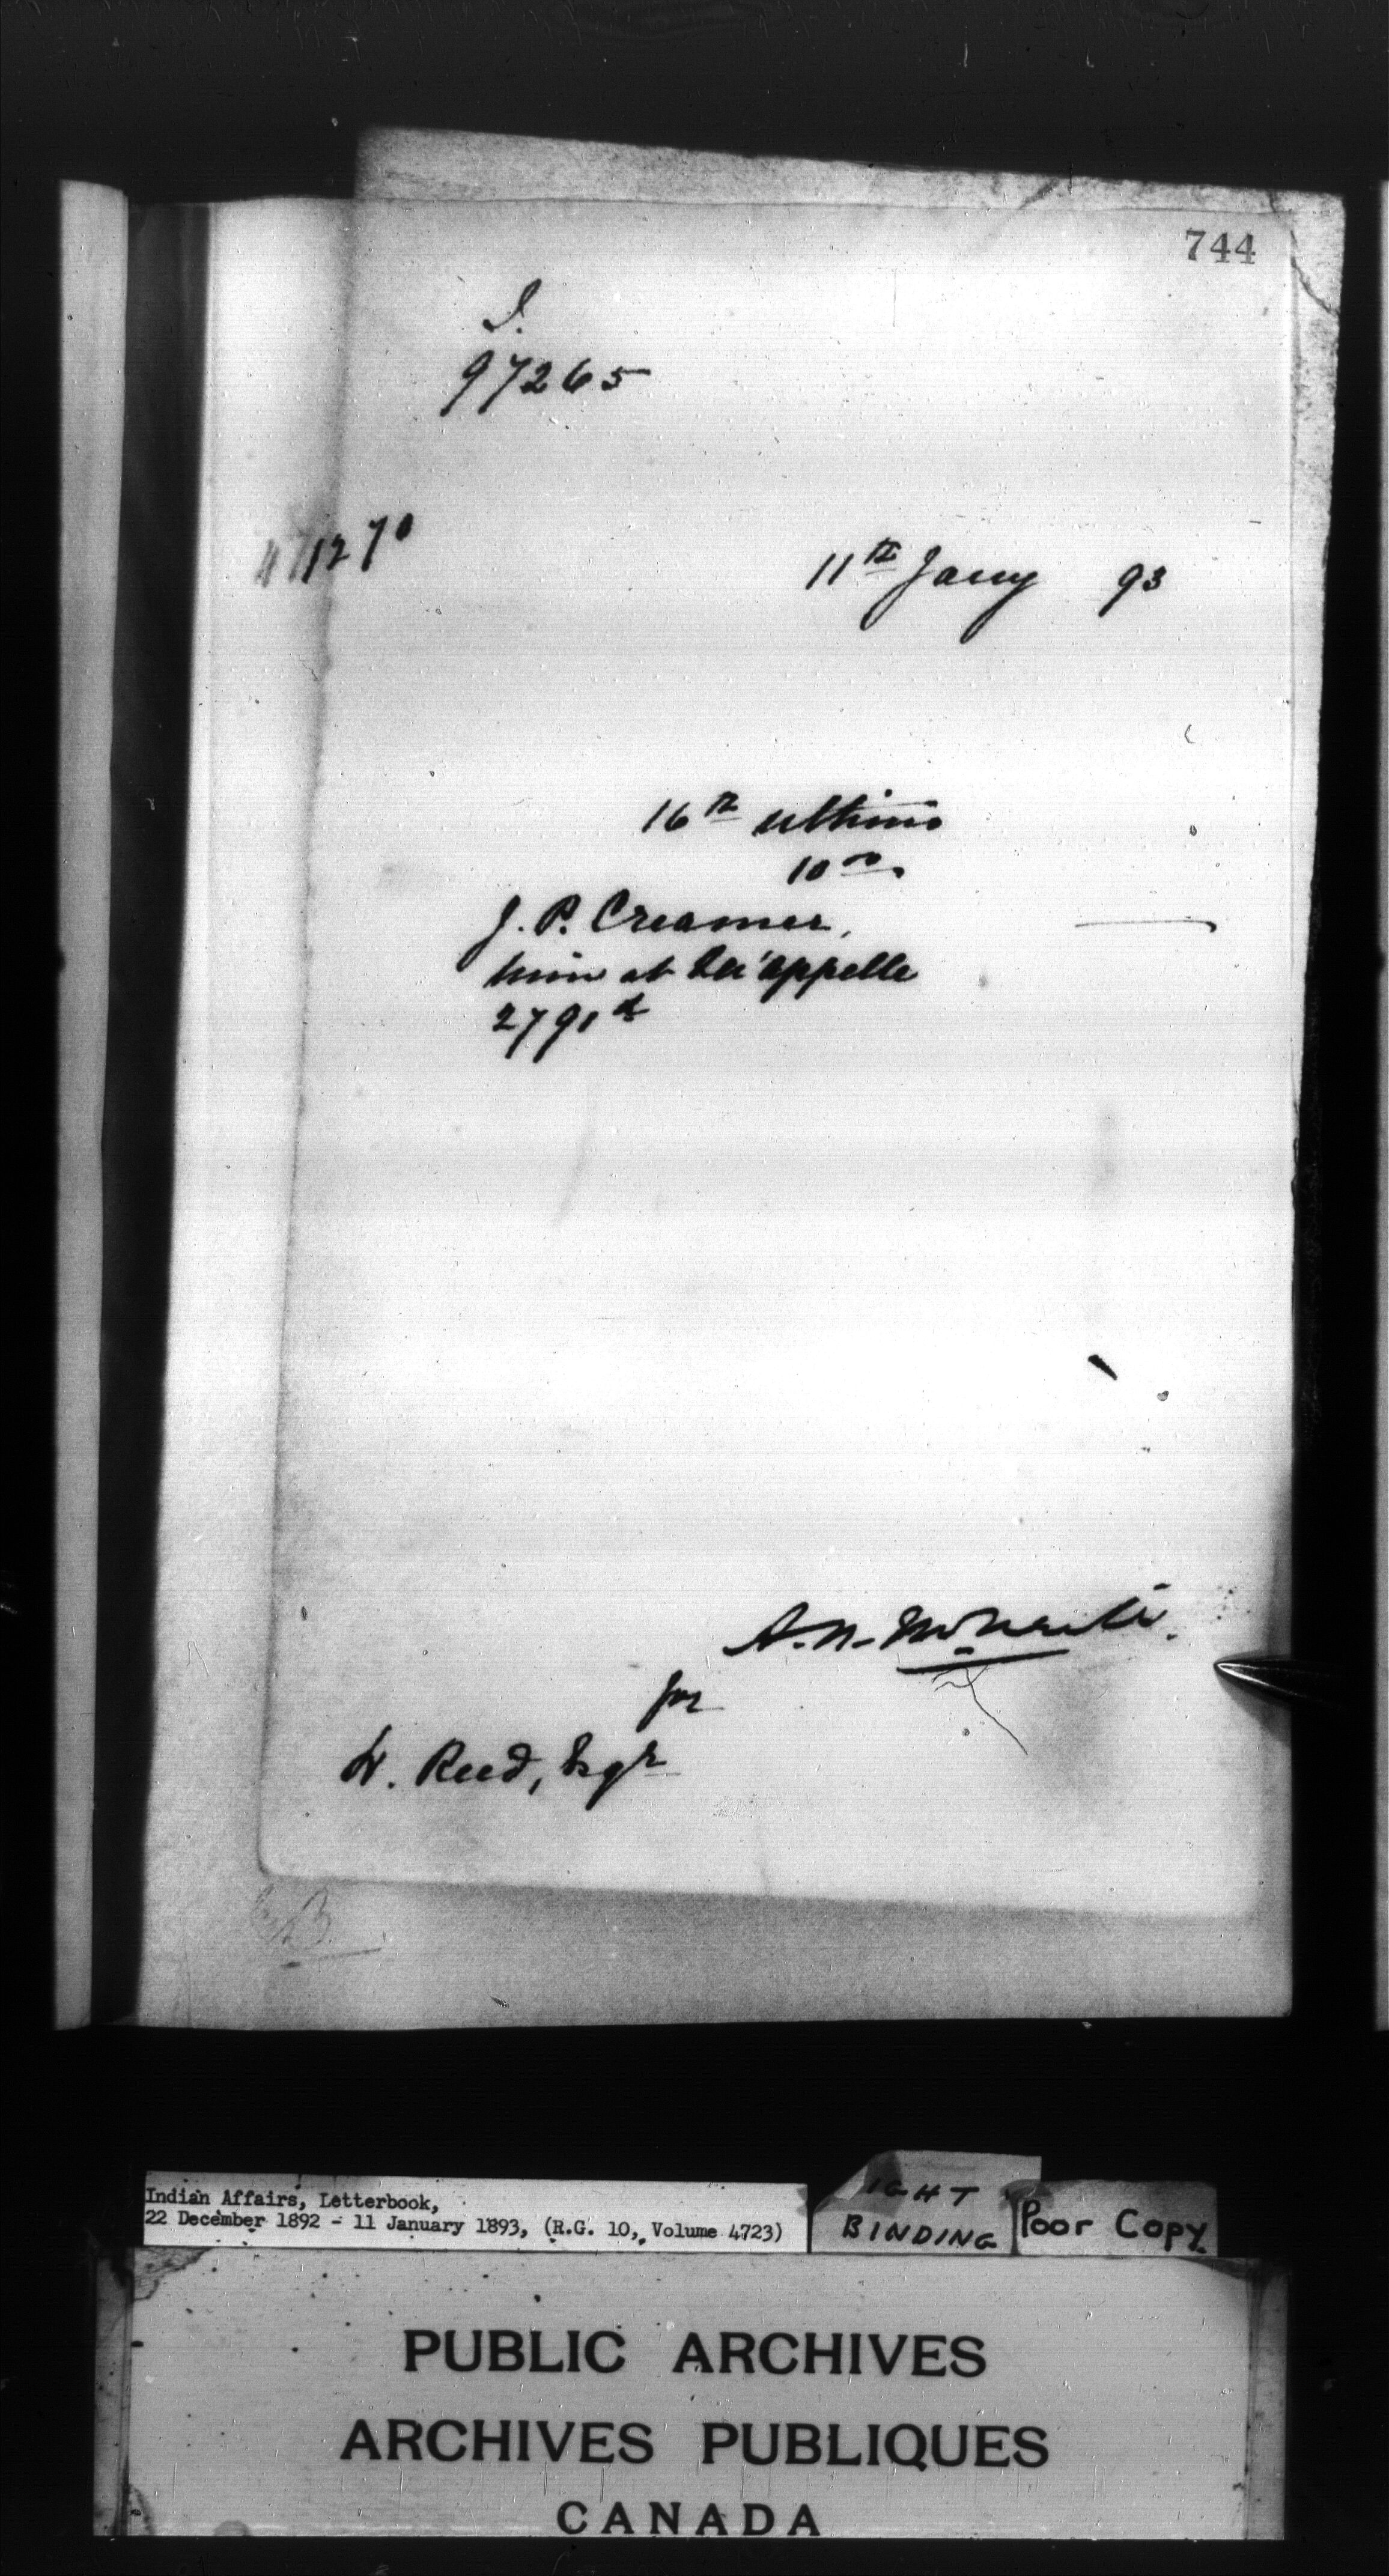 744
I.
97265
11270
11th Jany 93
16th ultimo
10 00.
J. P. Creamer,
him at Qu'appelle
2791
A. N. McNeill.
for
H. Reed, Esqr
B.
Indian Affairs, Letterbook,
22 December 1892 - 11 January 1893, (R.G. 10, Volume 4723)
IGHT
BINDING
Poor Copy.
PUBLIC ARCHIVES
ARCHIVES PUBLIQUES
CANADA